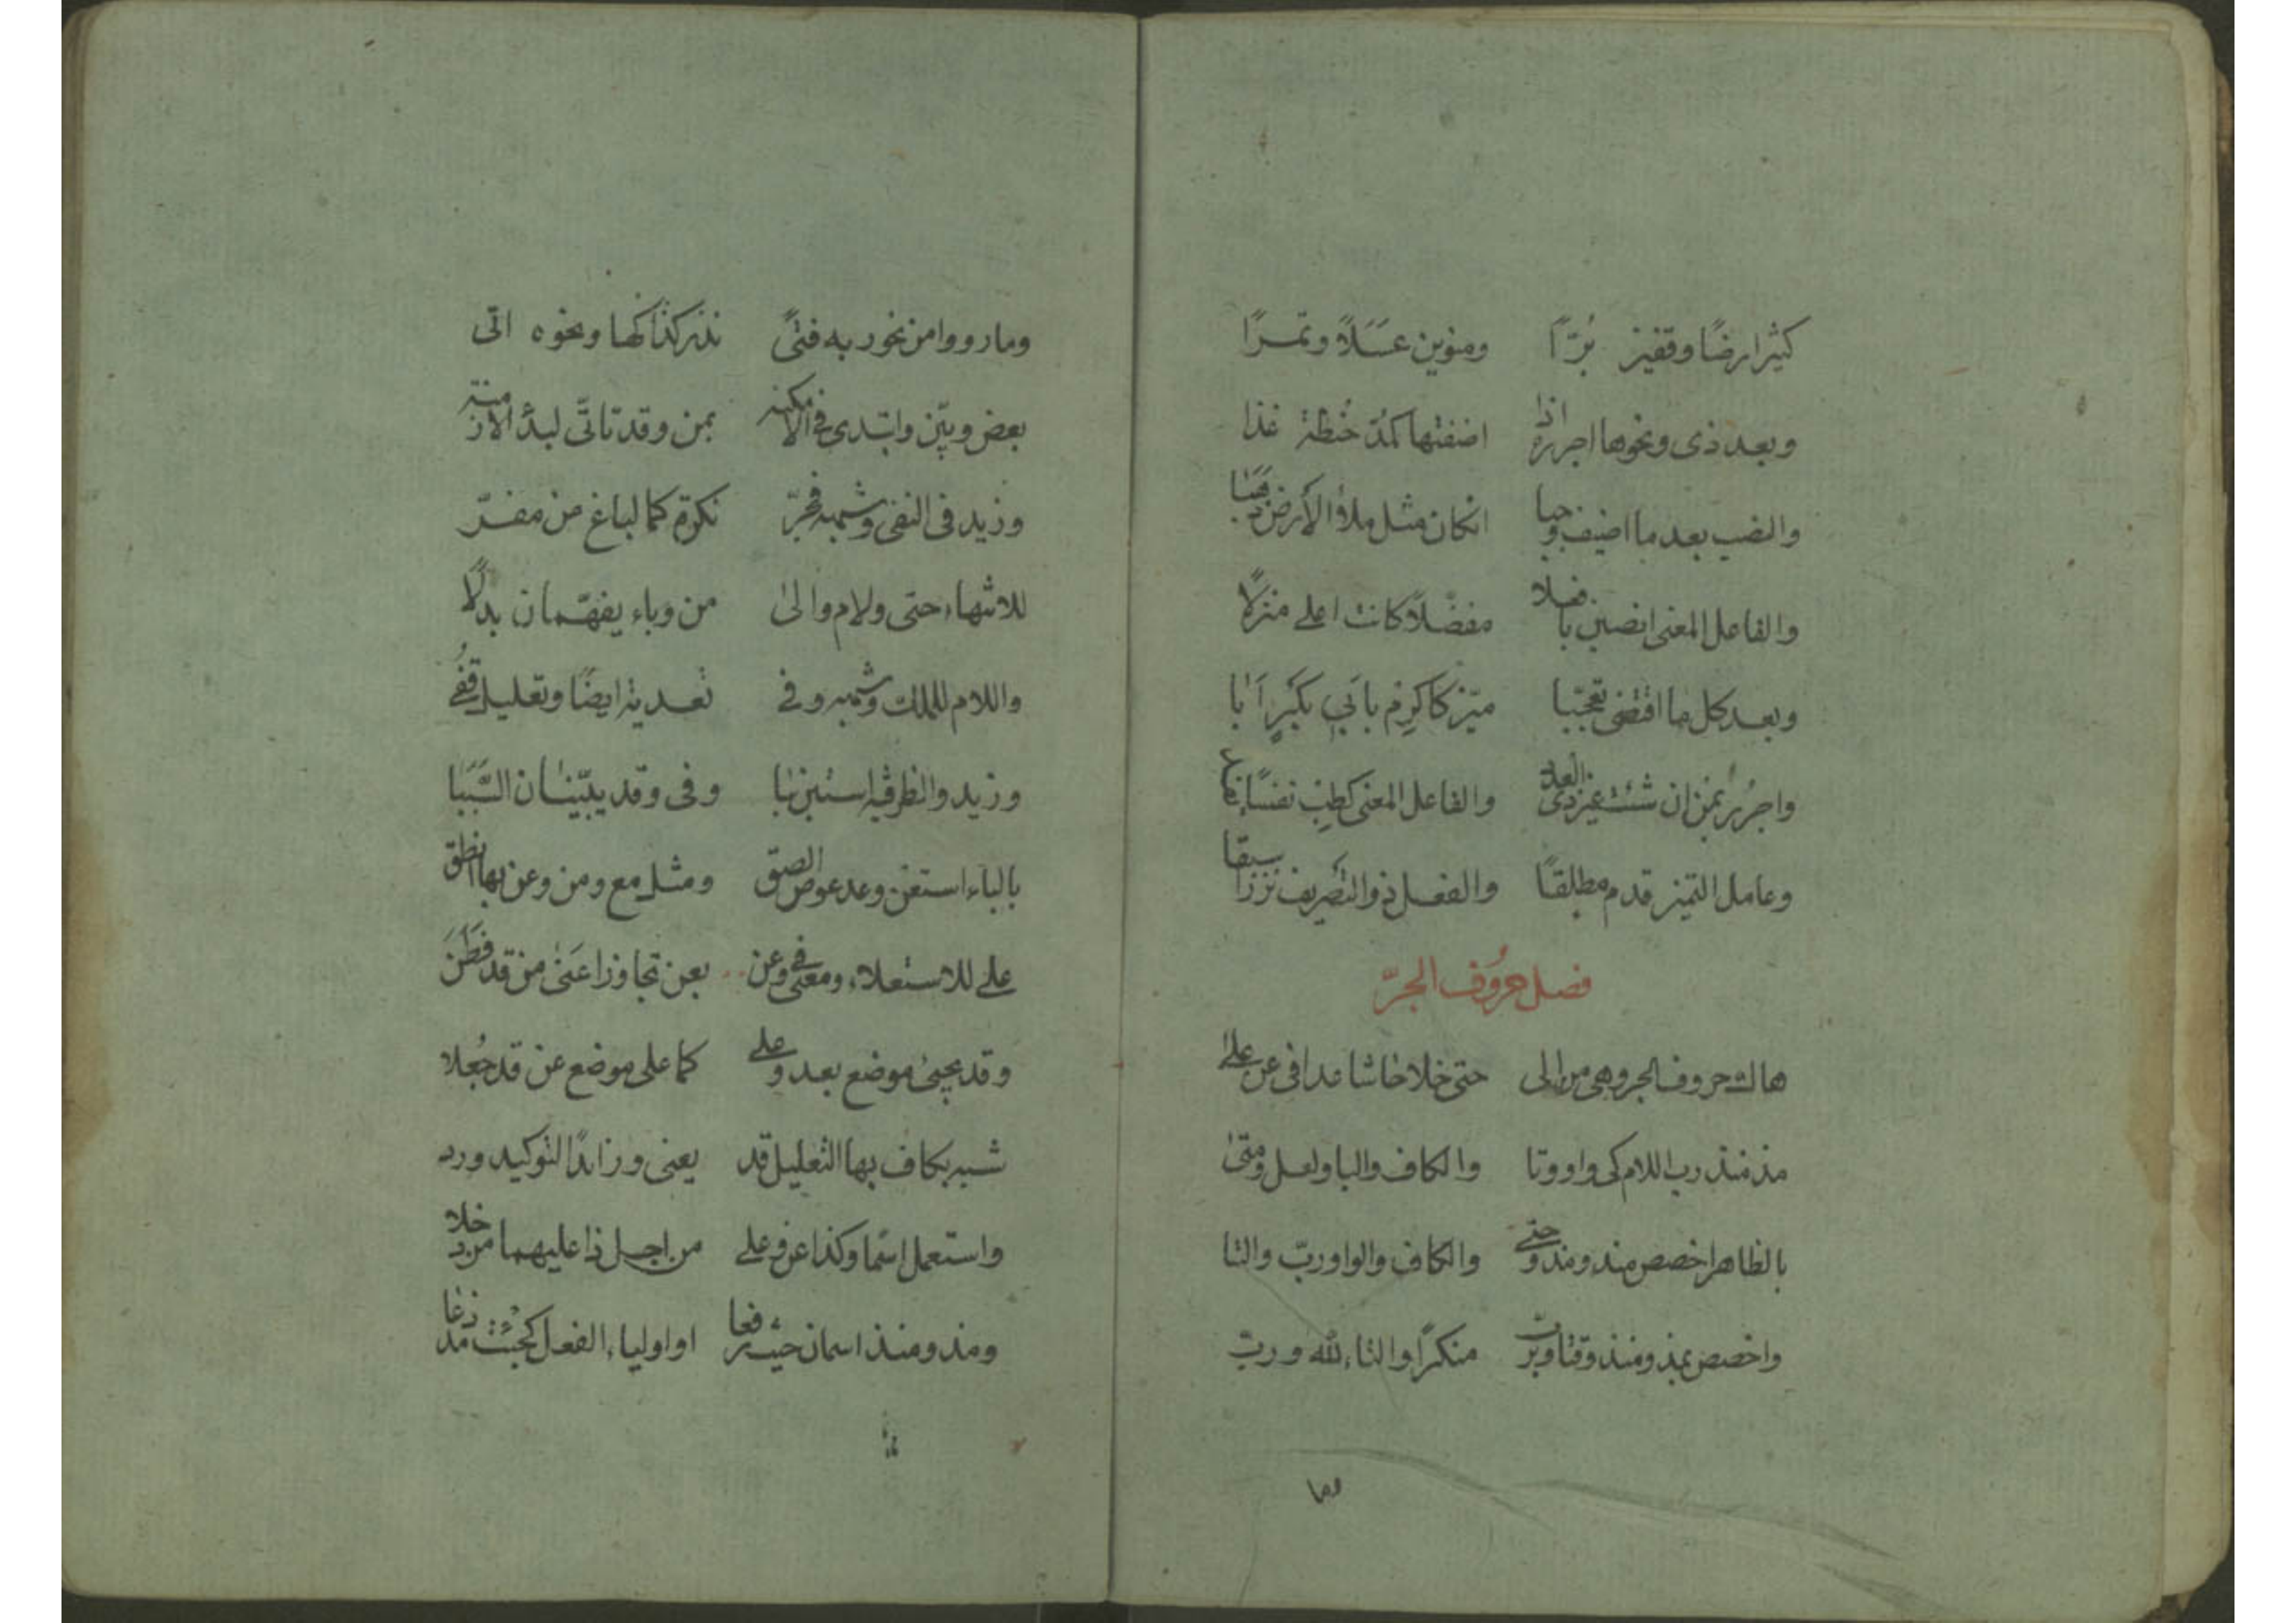 كشبر ارضًا وقفيز بُرّاً ومنوين عَسَلاً وتمرًا
وبعد ذى ونحوها اجرره اذا اضفتها كمدّ حنطة غذا
والنصب بعد ما اضيف وجبا انكان مثل ملاُ الأرض ذهبا
والفاعل المعنى انصبن بافعلا مفضّلاً كانت اعلى منزلاً
وبعد كل ما اقتضى تعجّبا ميّز كاكرِم بابَي بكرٍ اَبا
واجرُر بمن ان شئت غير ذى العدد والفاعل المعنى كطِب نفسًا
وعامل التميز قدم مطلقًا والفعل ذوالتصريف نزراً سبقا
فصل حروف الجرّ
هاك حروف الجر وهى من الى حتى خلا حاشا عدا فى عن على
مذ منذ رب اللام كى واو وتا والكاف والبا ولعل ومتى
بالظاهر اخصص منذ ومذ وحتى والكاف والواو وربّ والتا
واخصص بمذ ومنذ وقتا وبرب منكرًا والتاء لله ورب
وما رووا من نحو ربه فتىً نذر كذا كها ونحوه اتى
بعض وبيّن وابتدى فى الامكنه بمن وقد تاتّى لبدْ الازمنة
وزيد فى النفى وشبهه فجرّ نكرة كما لباغ من مفرّ
للانتهاء حتى ولام والى من وباء يفهّمان بدلاً
واللام للملك وشبهه وفى تعدية ايضًا وتعليل قفُى
وزيد والظرفية استبن ببا وفى وقد يبّينان السَّببا
بالباء استعن وعد عوض الصق ومثل مع ومن وعن بها انطق
على للاستعلاء ومعنى فى وعن بعن تجاوزا عَنى من قد فَطَنَ
وقد يجيئ موضع بعد وعلى كما على موضع عن قد جُعلا
شبه بكاف بها التعليل قد يعنى وزائدًا لتوكيد ورد
واستعمل اسمًا وكذا عن وعلى من اجل ذا عليهما من دخلا
ومذ ومنذ اسمان حيث رفعا او اوليا الفعل كجئت مذ دعا